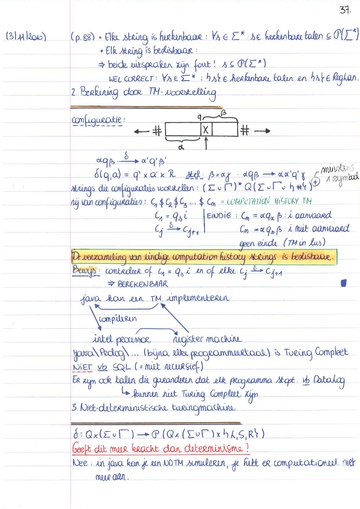 37.
(3/11/2010) (p.88) • Elke string is herkenbaar : ∀s ∈ Σ* s ∈ herkenbare talen ⊆ P(Σ*)
• Elke string is beslisbaar :
⇒ beide uitspraken zijn fout! s ⊄ P(Σ*)
WEL CORRECT : ∀s ∈ Σ* : {s} ∈ herkenbare talen en {s} ∈ Reglan.
2. Berekening door TM-voorstelling
configuratie :
q β
# X #
α
αqβ →δ α'q'β'
δ(q,a) = q' × a' × R stel β = aγ αqβ → αa'q'γ
strings die configuraties voorstellen : (Σ ∪ Γ)* Q (Σ ∪ Γ ∪ {#})+ minstens 1 symbool
rij van configuraties : C₁ $ C₂ $ C₃ ... $ Cₙ = COMPUTATION HISTORY TM
C₁ = qₛ i EINDIG : Cₘ = αqₐβ : i aanvaard
Cⱼ →δ Cⱼ₊₁ Cₘ = αqᵣβ : i niet aanvaard
geen einde (TM in lus)
De verzameling van eindige computation history strings is beslisbaar.
Bewijs : controleer of C₁ = qₛ i en of elke Cⱼ →δ Cⱼ₊₁
⇒ BEREKENBAAR
java kan een TM implementeren
compileren
intel processor register machine
java\Prolog\... (bijna elke programmeertaal) is Turing Compleet
NIET vb SQL (= niet recursief)
Er zijn ook talen die garanderen dat elk programma stopt. vb Datalog
↳ kunnen niet Turing Compleet zijn
3. Niet-deterministische turingmachine
δ : Q×(Σ∪Γ) → P(Q×(Σ∪Γ)×{L,S,R})
Geeft dit meer kracht dan determinisme?
Nee : in java kan je een NDTM simuleren, je hebt er computationeel niet
meer aan.